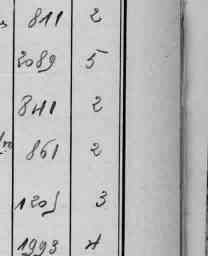 811 2
2089 5
841 2
861 2
1205 3
1993 4